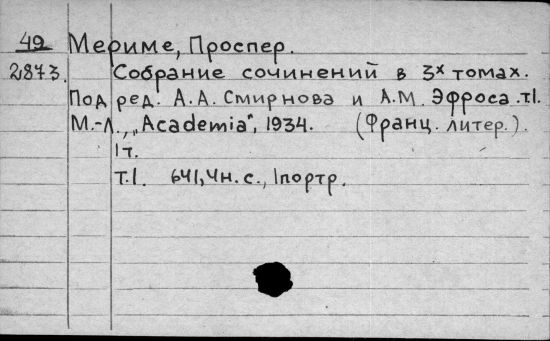 49 Мериме, Проспер.
2873. Собрание сочинений в 3х томах.
Под ред. А.А. Смирнова и А.М. Эфроса. т.1.
М.-Л., „Academia", 1934. (Франц. литер.).
1 т.
Т.1. 641, 4 н. с., 1 портр.